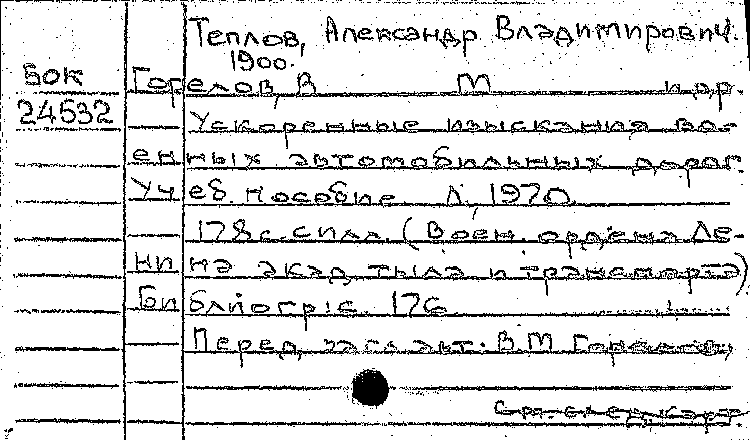 Теплов, Александр Владимирович.
1900.
Бок
24532
Горелов, В М и др.
Ускоренные изыскания во-
енных автомобильных дорог.
Учеб. пособие. Л, 1970
178с. с илл. (Воен. ордена Ле-
нина акад. тыла и транспорта)
Библиогр: с. 176
Перед загл. авт.: В.М Горелов,
См. след. карт.